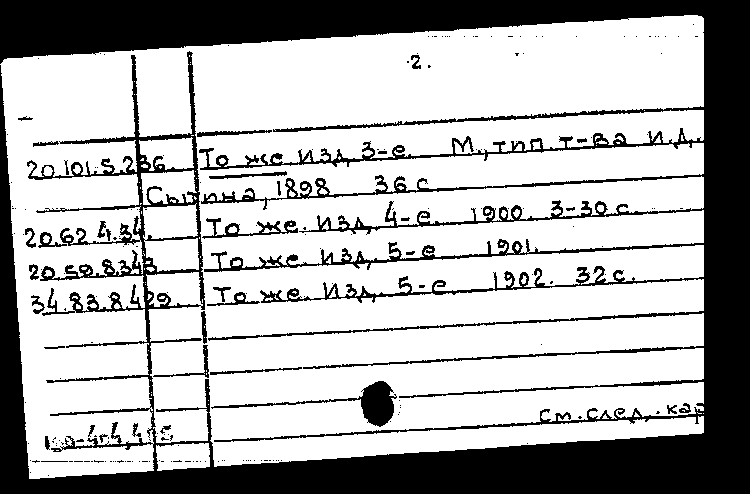 2.
20.101.5.236. То же. Изд. 3-е. М., тип. т-ва И.Д.
Сытина, 1898 36 с.
20.62.4.34. То же. Изд. 4-е. 1900. 3-30 с.
20.59.8.343 То же. Изд. 5-е 1901.
34.83.8.429. То же. Изд. 5-е 1902. 32 с.
см. след. кар